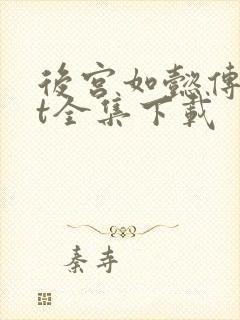 後宮如懿傳
t全集下載
秦寺